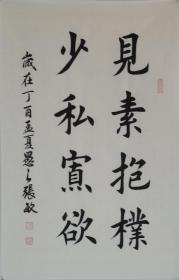 見素抱樸
少私寡欲
歲在丁酉孟夏愚之張敏